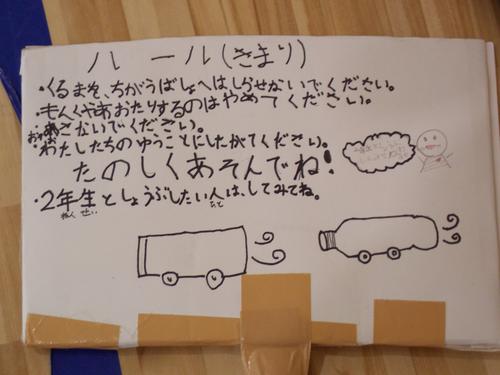 ルール(きまり)
・くるまを、ちがうばしょへはしらせないでください。
・もんくやあおたりするのはやめてください。
・おさないでください。
・わたしたちのゆうことにしたがてください。
たのしくあそんでね!
・2年生としょうぶしたい人は、してみてね。
ねん せい ひと